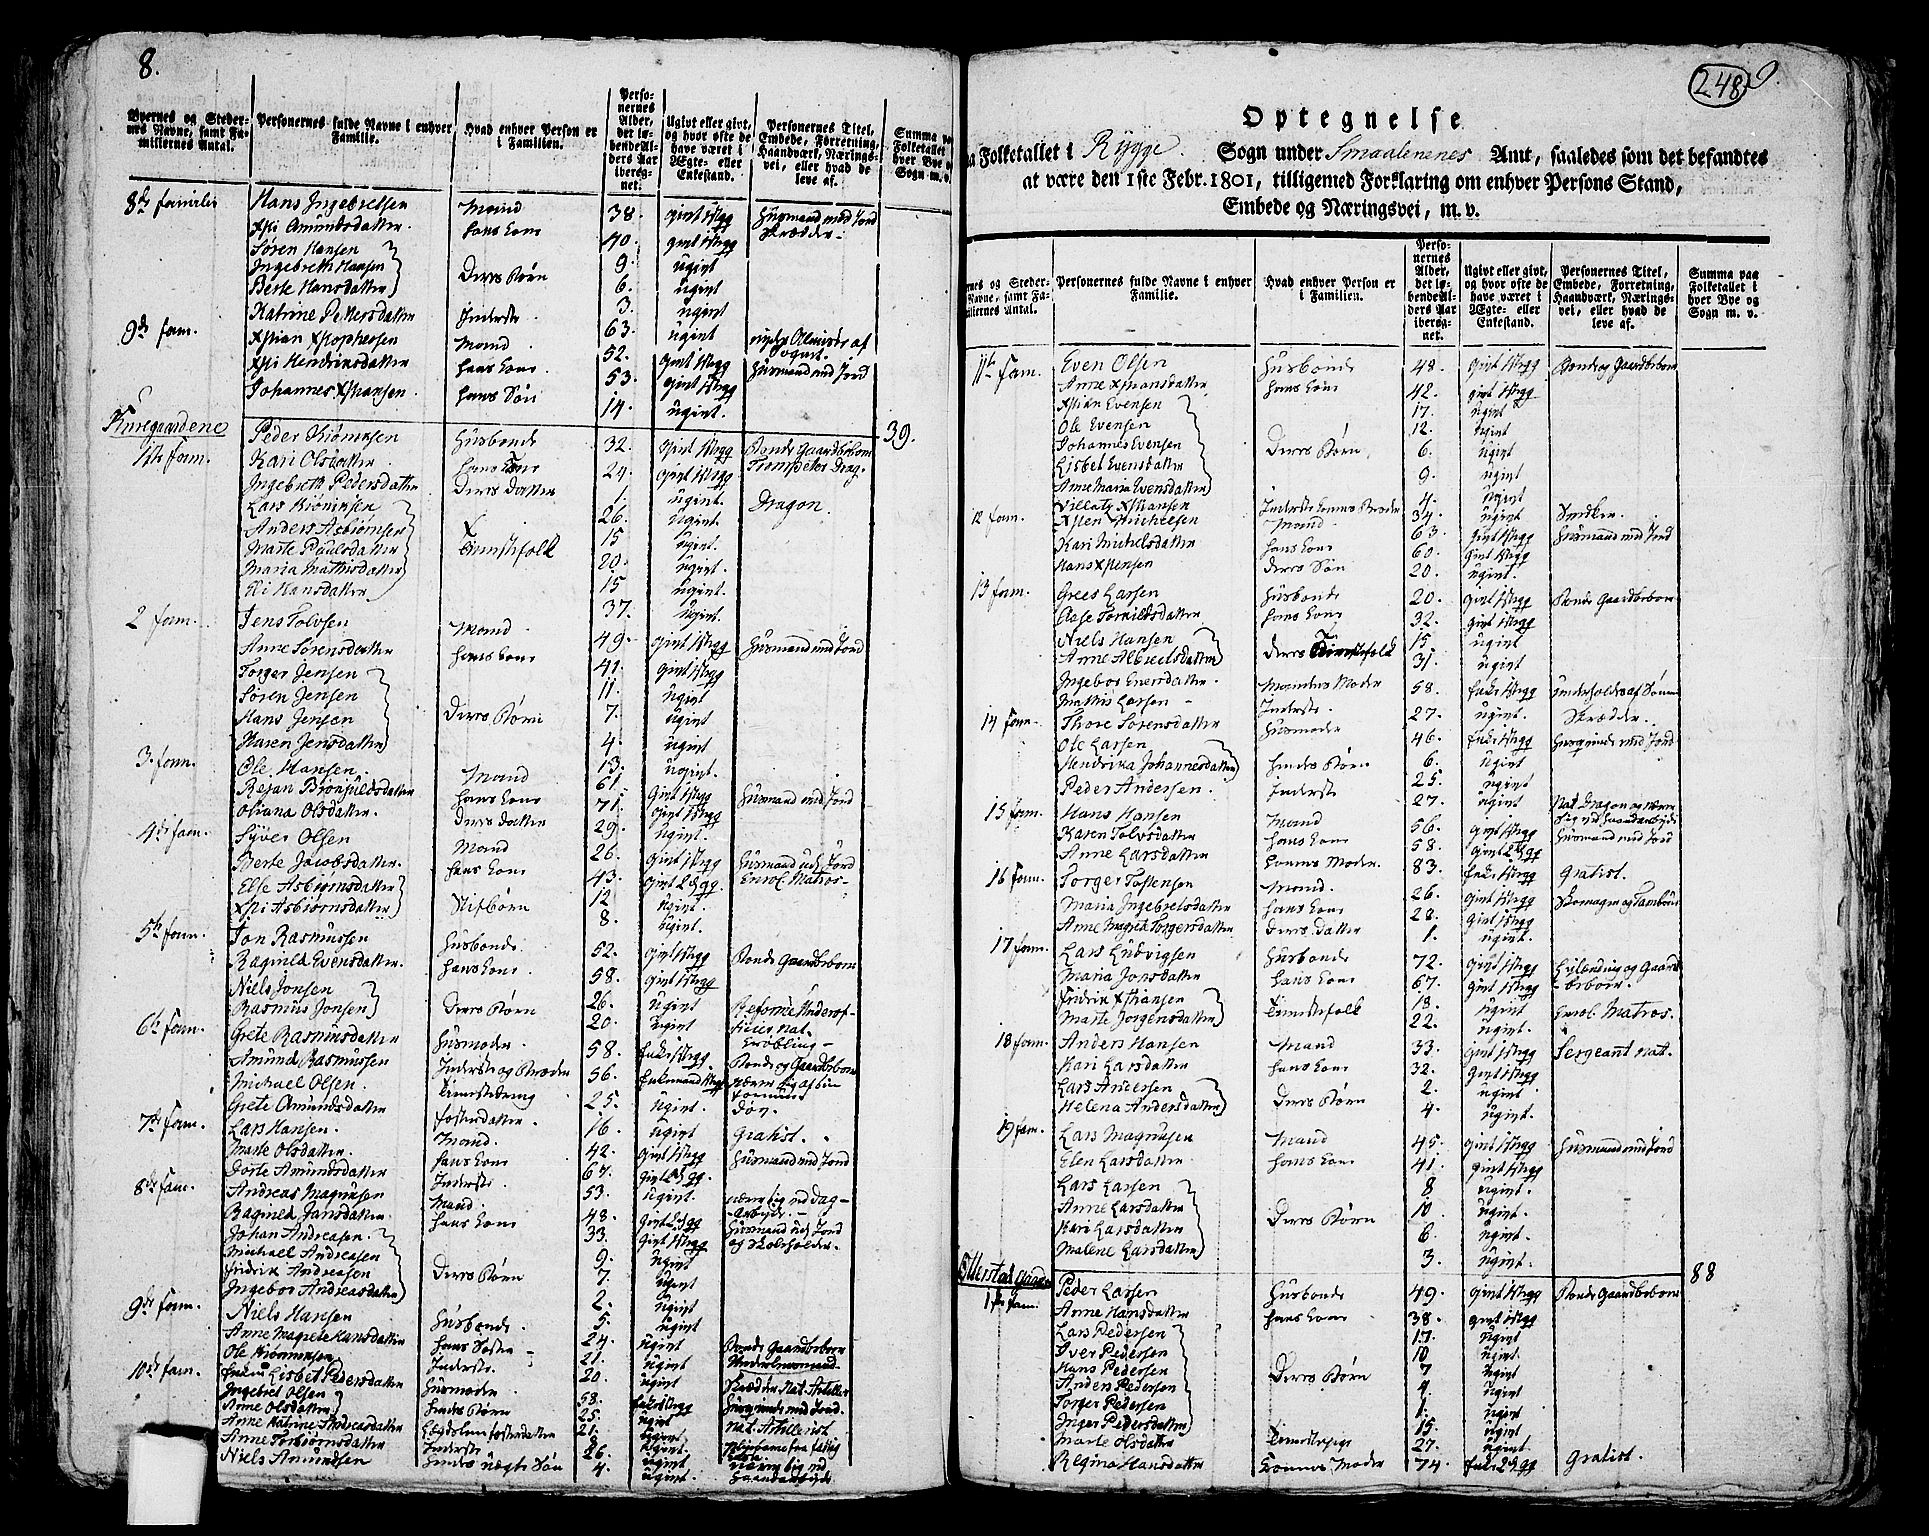 8.
Byernes og Steder-
nes Navne, samt Fa-
milliernes Antal.
Personernes fulde Navne i enhver
Familie.
Hvad enhver Person er
i Familien.
Perso-
nernes
Alder,
det lø-
bende Al-
ders Aar
ibereg-
net.
Ugivt eller givt,
og hvor ofte de
have været i
Ægte- eller
Enkestand.
Personernes Titel,
Embede, Forretning,
Haandværk, Nærings-
vei, eller hvad de
leve af.
Summa paa
Folketallet i
hver Bye o
Sogn m. v.
8de familie Hans Ingebretsen Mand 38. givt 1ste gg Huusmand med Jord
Kxsti Amundsdatter. hans kone 40. givt 1ste gg Skrædder
Søren Hansen 9. ugivt
Ingebreth Hansen Deres Børn 6. ugivt
Berte Hansdatter 3. ugivt
Katrine Pettersdatter Inderste 63. ugivt nyder Almisse af Sognet.
9de fam. Xstian Xstophersen Mand 52. givt 1ste gg Huusmand med Jord
Xsti Hendriksdatter hans kone. 53. givt 1ste gg
Johannes Xstiansen hans Søn 14. ugivt.
39.
1ste fam. Peder Kiønigsen Husbonde 32. givt 1ste gg Bonde Gaardbeboer
Kari Olsdatter hans kone 24. givt 1ste gg
Ingebreth Pedersdatter Deres datter 1. ugivt.
Lars 26. ugivt. Dragon.
Anders Asbiørnsen 15 ugivt.
Marte Paulsdatter Tienistefolk 20. ugivt.
Maria Mathisdatter 15 ugivt.
Hansdatter 37. ugivt.
2 fam. Jens Tolvsen Mand. 49. givt 1ste gg Huusmand med Jord
Anne Sørensdatter hans kone 41. givt 1ste gg
Torger Jensen 11. ugivt
Søren Jensen Deres Børn 7. ugivt
Hans Jensen 4. ugivt
Karen Jensdatter 13. ugivt.
3. fam. Ole Hansen Mand 61. givt 1ste gg Huusmand med Jord
hans kone 71. givt 1ste gg
Oliana Olsdatter. Deres datter 29. ugivt.
4de fam. Syver Olsen Mand 26. givt 1ste gg Huusmand ud. Jord
Berte Jacobsdatter. hans kone 43. givt 2d gg. Enrol. Matros
Else Asbiørnsdatter Stifbørn 12 ugivt.
Xsti Asbiørnsdatter 8. ugivt.
5te fam. Jon Rasmussen Husbonde. 52. givt 1ste gg Bonde Gaardbeboer
Ragnild Evensdatter. hans kone. 58. givt 1ste gg
Niels Jonsen Deres Børn 26. ugivt
Rasmus Jonsen 20. ugivt
6te fam. Grete Rasmusdatter Husmoder. 58. Enke 1ste gg. Bonde og Gaardbeboer
Amund Rasmussen 56. Enkemand 1ste gg
Michael Olsen. Tienistedreng 25. ugivt.
Grete Amundsdatter fosterdatter. 16. ugivt Gratist.
7de fam. Lars Hansen. Mand. 42. givt 1ste gg Huusmand med Jord
Marte Olsdatter. hans kone 67. givt 2d gg.
Dorte Amundsdatter Inderste. 53. ugivt.
8de fam. Andreas Magnusen Mand. 48. givt 2d gg Huusmand ud. Jord
Ragnild Jansdatter. hans kone 33. givt 1ste gg og Skoleholder.
Johan Andreasen. 9. ugivt
Michael Andreasen Deres Børn 7. ugivt
Fridrik Andreasen 2. ugivt
Ingebor Andreasdatter 5. ugivt
9de fam. Niels Hansen Husbonde. 24. ugivt Bonde Gaardbeboer
Anne Magrete Hansdatter hans Søster 21. ugivt
Ole Inderste. 20. ugivt
10de fam. Enken Lisbet Pedersdatter Husmoder 58. Enke 1ste gg Huusqvinde med Jord.
Ingebret Olsen hendes Børn 25. ugivt nat. Artillerist
Anne Olsdatter 21. ugivt
Anne Katrine Andreasdatter fosterdatter 8. ugivt.
Anne Torbiørnsdatter Inderste 26 ugivt
Niels Amundsen hendes uægte Søn 4. ugivt.
248
9.
Optegnelse
paa Folketallet i Rygge Sogn under Smaalenenes Amt, saaledes som det befandtes
at være den 1ste Febr. 1801, tilligemed Forklaring om enhver Persons Stand,
Embede og Næringsvei, m. v.
Personernes fulde Navne i enhver
Familie.
Hvad enhver Person er
i Familien.
Perso-
nernes
Alder,
det lø-
bende Al-
ders Aar
ibereg-
net.
Ugivt eller givt,
og hvor ofte de
have været i
Ægte- eller
Enkestand.
Personernes Titel,
Embede, Forretning,
Haandværk, Nærings-
vei, eller hvad de
leve af.
Summa paa
Folketallet i
hver Bye og
Sogn m. v.
11te fam. Even Olsen Husbonde 48. givt 1ste gg Bonde og Gaardbeboer
Anne Xstiansdatter hans kone 42. givt 1ste gg
Xstian Evensen 17. ugivt
Ole Evensen 12. ugivt
Johannes Evensen Deres Børn 6. ugivt
Lisbet Evensdatter 9. ugivt
Anne Maria Evensdatter 4. ugivt
Xstiansen Inderste konens Broder 34. ugivt Snedker.
12 fam. Xsten Michelsen Mand 63. givt 1ste gg Huusmand med Jord
Kari Michelsdatter hans kone 60. givt 1ste gg
Hans Xstensen Deres Søn 20. ugivt.
13 fam. Grees Larsen Husbonde 20. givt 1ste gg Bonde Gaardbeboer
Aase Torkildsdatter hans kone 32. givt 1ste gg
Niels Hansen Deres Tienistefolk 15 ugivt
Anne Albretsdatter 31. ugivt
Ingebor Enersdatter. Mandens Moder 58. Enke 1ste gg underholdes af Sønnen
Mathis Larsen Inderste. 27. ugivt. Skrædder.
14 fam. Thore Sørensdatter Husmoder 46. Enke 1ste gg Huusqvinde med Jord
Ole Larsen hendes Børn 6. ugivt
Hendrika Johannesdatter 25. ugivt
Peder Andersen. Inderste 27. ugivt Nat. Dragon og nærer sig ved haandarbejde
15 fam. Hans Hansen Mand 56. givt 1ste gg Huusmand med Jord
Karen Tolvsdatter hans kone 58. givt 2d gg
Anne Larsdatter konens Moder. 83. Enke 1ste gg Gratist.
16 fam. Torger Tostensen Mand. 26. givt 1ste gg Skomager og Tambour
Maria Ingebretsdatter hans kone 28. givt 1ste gg
Anne Magrete Torgersdatter Deres datter 1. ugivt.
17 fam. Lars Ludvigsen Husbonde 72. givt 1ste gg
Maria Jonsdatter hans kone 67. givt 1ste gg
Fridrik Xstiansen Tienistefolk 18. ugivt Enrol. Matros.
Marte Jorgensdatter 22. ugivt.
18 fam. Anders Hansen Mand 33. givt 1ste gg Sergeant nat.
Kari Larsdatter hans kone 32. givt 1ste gg
Lars Andersen Deres Børn 2. ugivt
Helena Andersdatter 4. ugivt.
19 fam. Lars Magnusen Mand 45. givt 1ste gg Huusmand med Jord
Elen Larsdatter hans kone 41. givt 1ste gg
Lars Larsen 8 ugivt.
Anne Larsdatter Deres Børn 10 ugivt.
Kari Larsdatter 6. ugivt.
Malene Larsdatter 3. ugivt.
88
1ste fam. Peder Larsen Husbonde 49. givt 1ste gg Bonde Gaardbeboer
Anne Hansdatter hans kone 38. givt 1ste gg
Lars Pedersen 17. ugivt
Iver Pedersen 10 ugivt
Hans Pedersen Deres Børn 7 ugivt
Anders Pedersen 4. ugivt
Torger Pedersen 1. ugivt
Inger Pedersdatter 15. ugivt
Marte Olsdatter Tienistepige 27. ugivt
Regina Hansdatter Konens Moder 74. Enke 2d gg Gratist.